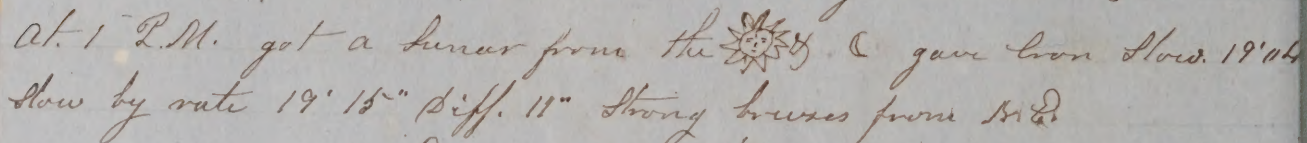 At. 1 P.M. got a Lunar from the ☀ & ☾ gave Cron Slow. 19'04
Slow by rate 19' 15" Diff. 11" Strong breezes from N.E.